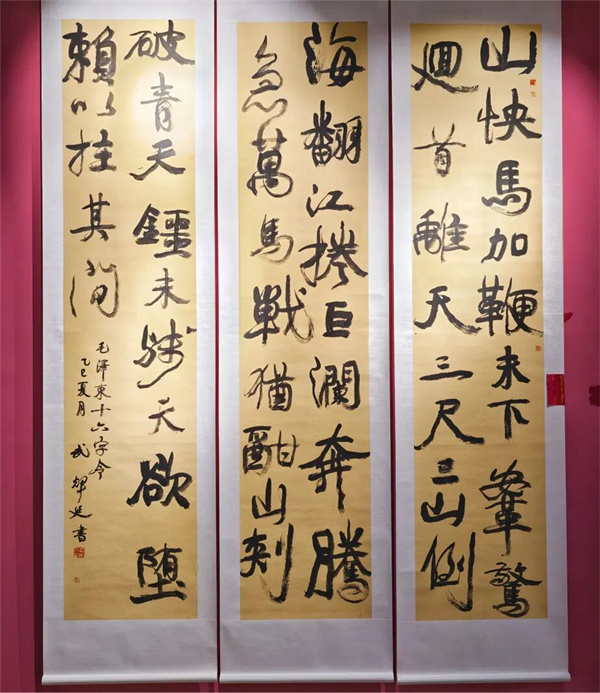 山快馬加鞭未下鞌驚
廻首離天三尺三山倒
海翻江捲巨瀾奔騰
急萬馬戦猶酣山刺
破青天鍔未残天欲堕
賴以拄其间
毛澤東十六字令
乙巳夏月 武 書